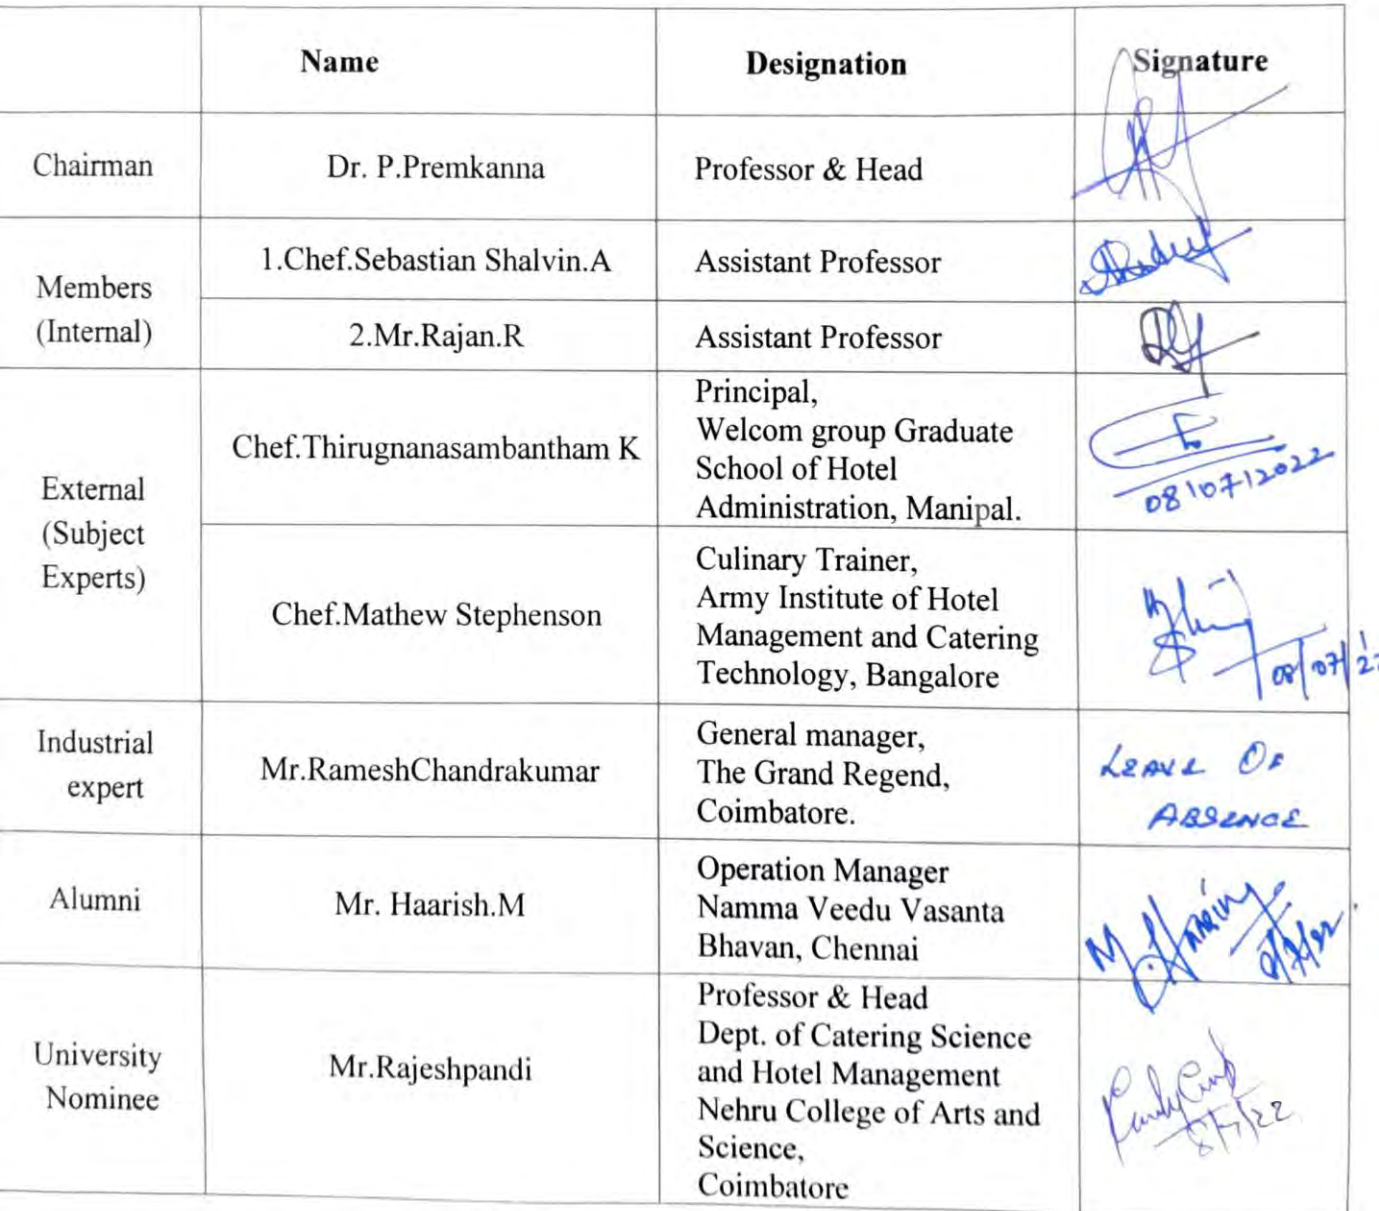 Name Designation Signature
Chairman Dr. P.Premkanna Professor & Head
Members
(Internal)
1.Chef.Sebastian Shalvin.A Assistant Professor
2.Mr.Rajan.R Assistant Professor
External
(Subject
Experts)
Chef.Thirugnanasambantham K
Principal,
Welcom group Graduate
School of Hotel
Administration, Manipal.
08/07/2022
Chef.Mathew Stephenson
Culinary Trainer,
Army Institute of Hotel
Management and Catering
Technology, Bangalore
08/07/22
Industrial
expert
Mr.RameshChandrakumar
General manager,
The Grand Regend,
Coimbatore.
LEAVE OF
ABSENCE
Alumni
Mr. Haarish.M
Operation Manager
Namma Veedu Vasanta
Bhavan, Chennai
University
Nominee
Mr.Rajeshpandi
Professor & Head
Dept. of Catering Science
and Hotel Management
Nehru College of Arts and
Science,
Coimbatore
8/7/22